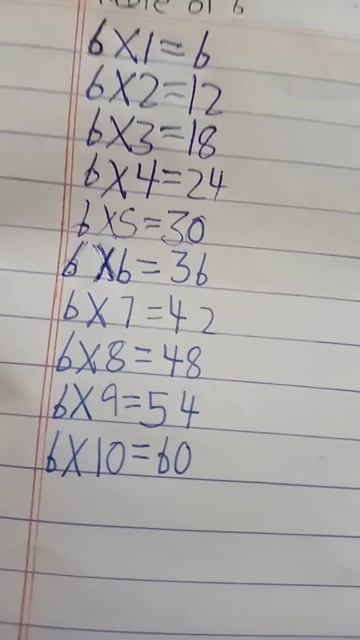 Table of 6
6X1=6
6X2=12
6X3=18
6X4=24
6X5=30
6X6=36
6X7=42
6X8=48
6X9=54
6X10=60